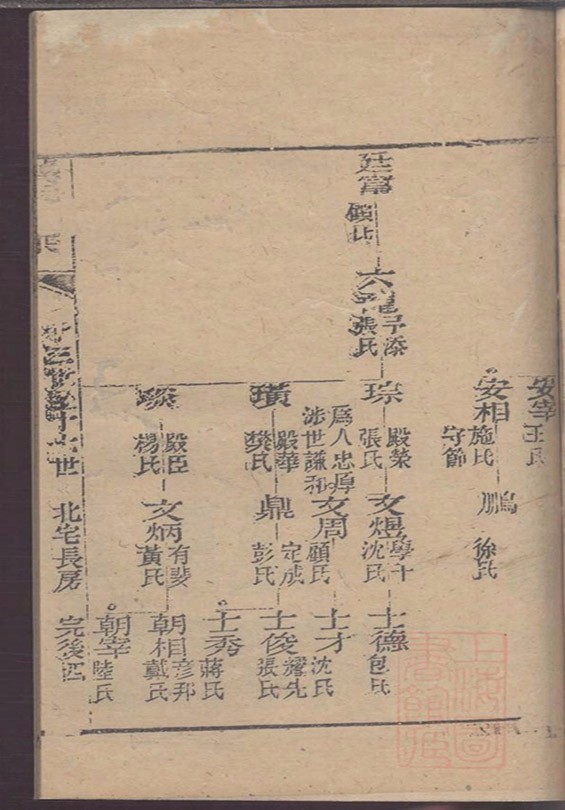 安宰 王氏
安相 施氏 守節
鵬 徐氏
廷富 顧氏
六龍 子添 張氏
琮 殿榮 張氏
文煜 學千 沈氏
士德 包氏
爲人忠厚
涉世謙和
文周 顧氏
士才 沈氏
璜 殿華 樊氏
鼎 定成 彭氏
士俊 耀先 張氏
士秀 蔣氏
殿臣 楊氏
文炳 有斐 黃氏
朝相 彥邦 戴氏
朝宰 陸氏
世 北宅長房 完後四